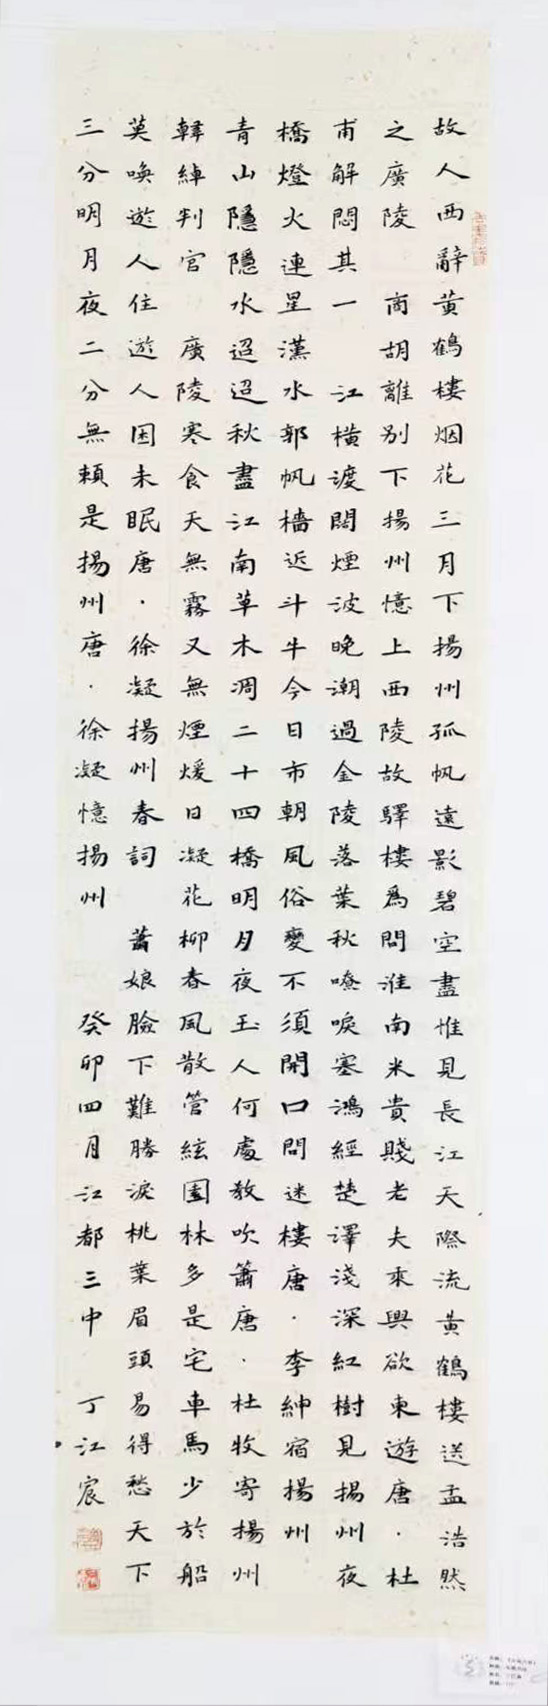 故人西辭黃鶴樓烟花三月下揚州孤帆遠影碧空盡惟見長江天際流黃鶴樓送孟浩然
之廣陵　商胡離別下揚州憶上西陵故驛樓爲問淮南米貴賤老夫乘興欲東遊唐·杜
甫解悶其一　江橫渡闊煙波晚潮過金陵落葉秋嘹唳塞鴻經楚澤淺深紅樹見揚州夜
橋燈火連星漢水郭帆檣近斗牛今日市朝風俗變不須開口問迷樓唐·李紳宿揚州
青山隱隱水迢迢秋盡江南草木凋二十四橋明月夜玉人何處教吹簫唐·杜牧寄揚州
韓綽判官　廣陵寒食天無霧又無煙煖日凝花柳春風散管絃園林多是宅車馬少於船
莫喚遊人住遊人困未眠唐·徐凝揚州春詞　蕭娘臉下難勝淚桃葉眉頭易得愁天下
三分明月夜二分無賴是揚州唐·徐凝憶揚州　癸卯四月江都三中　丁江宸